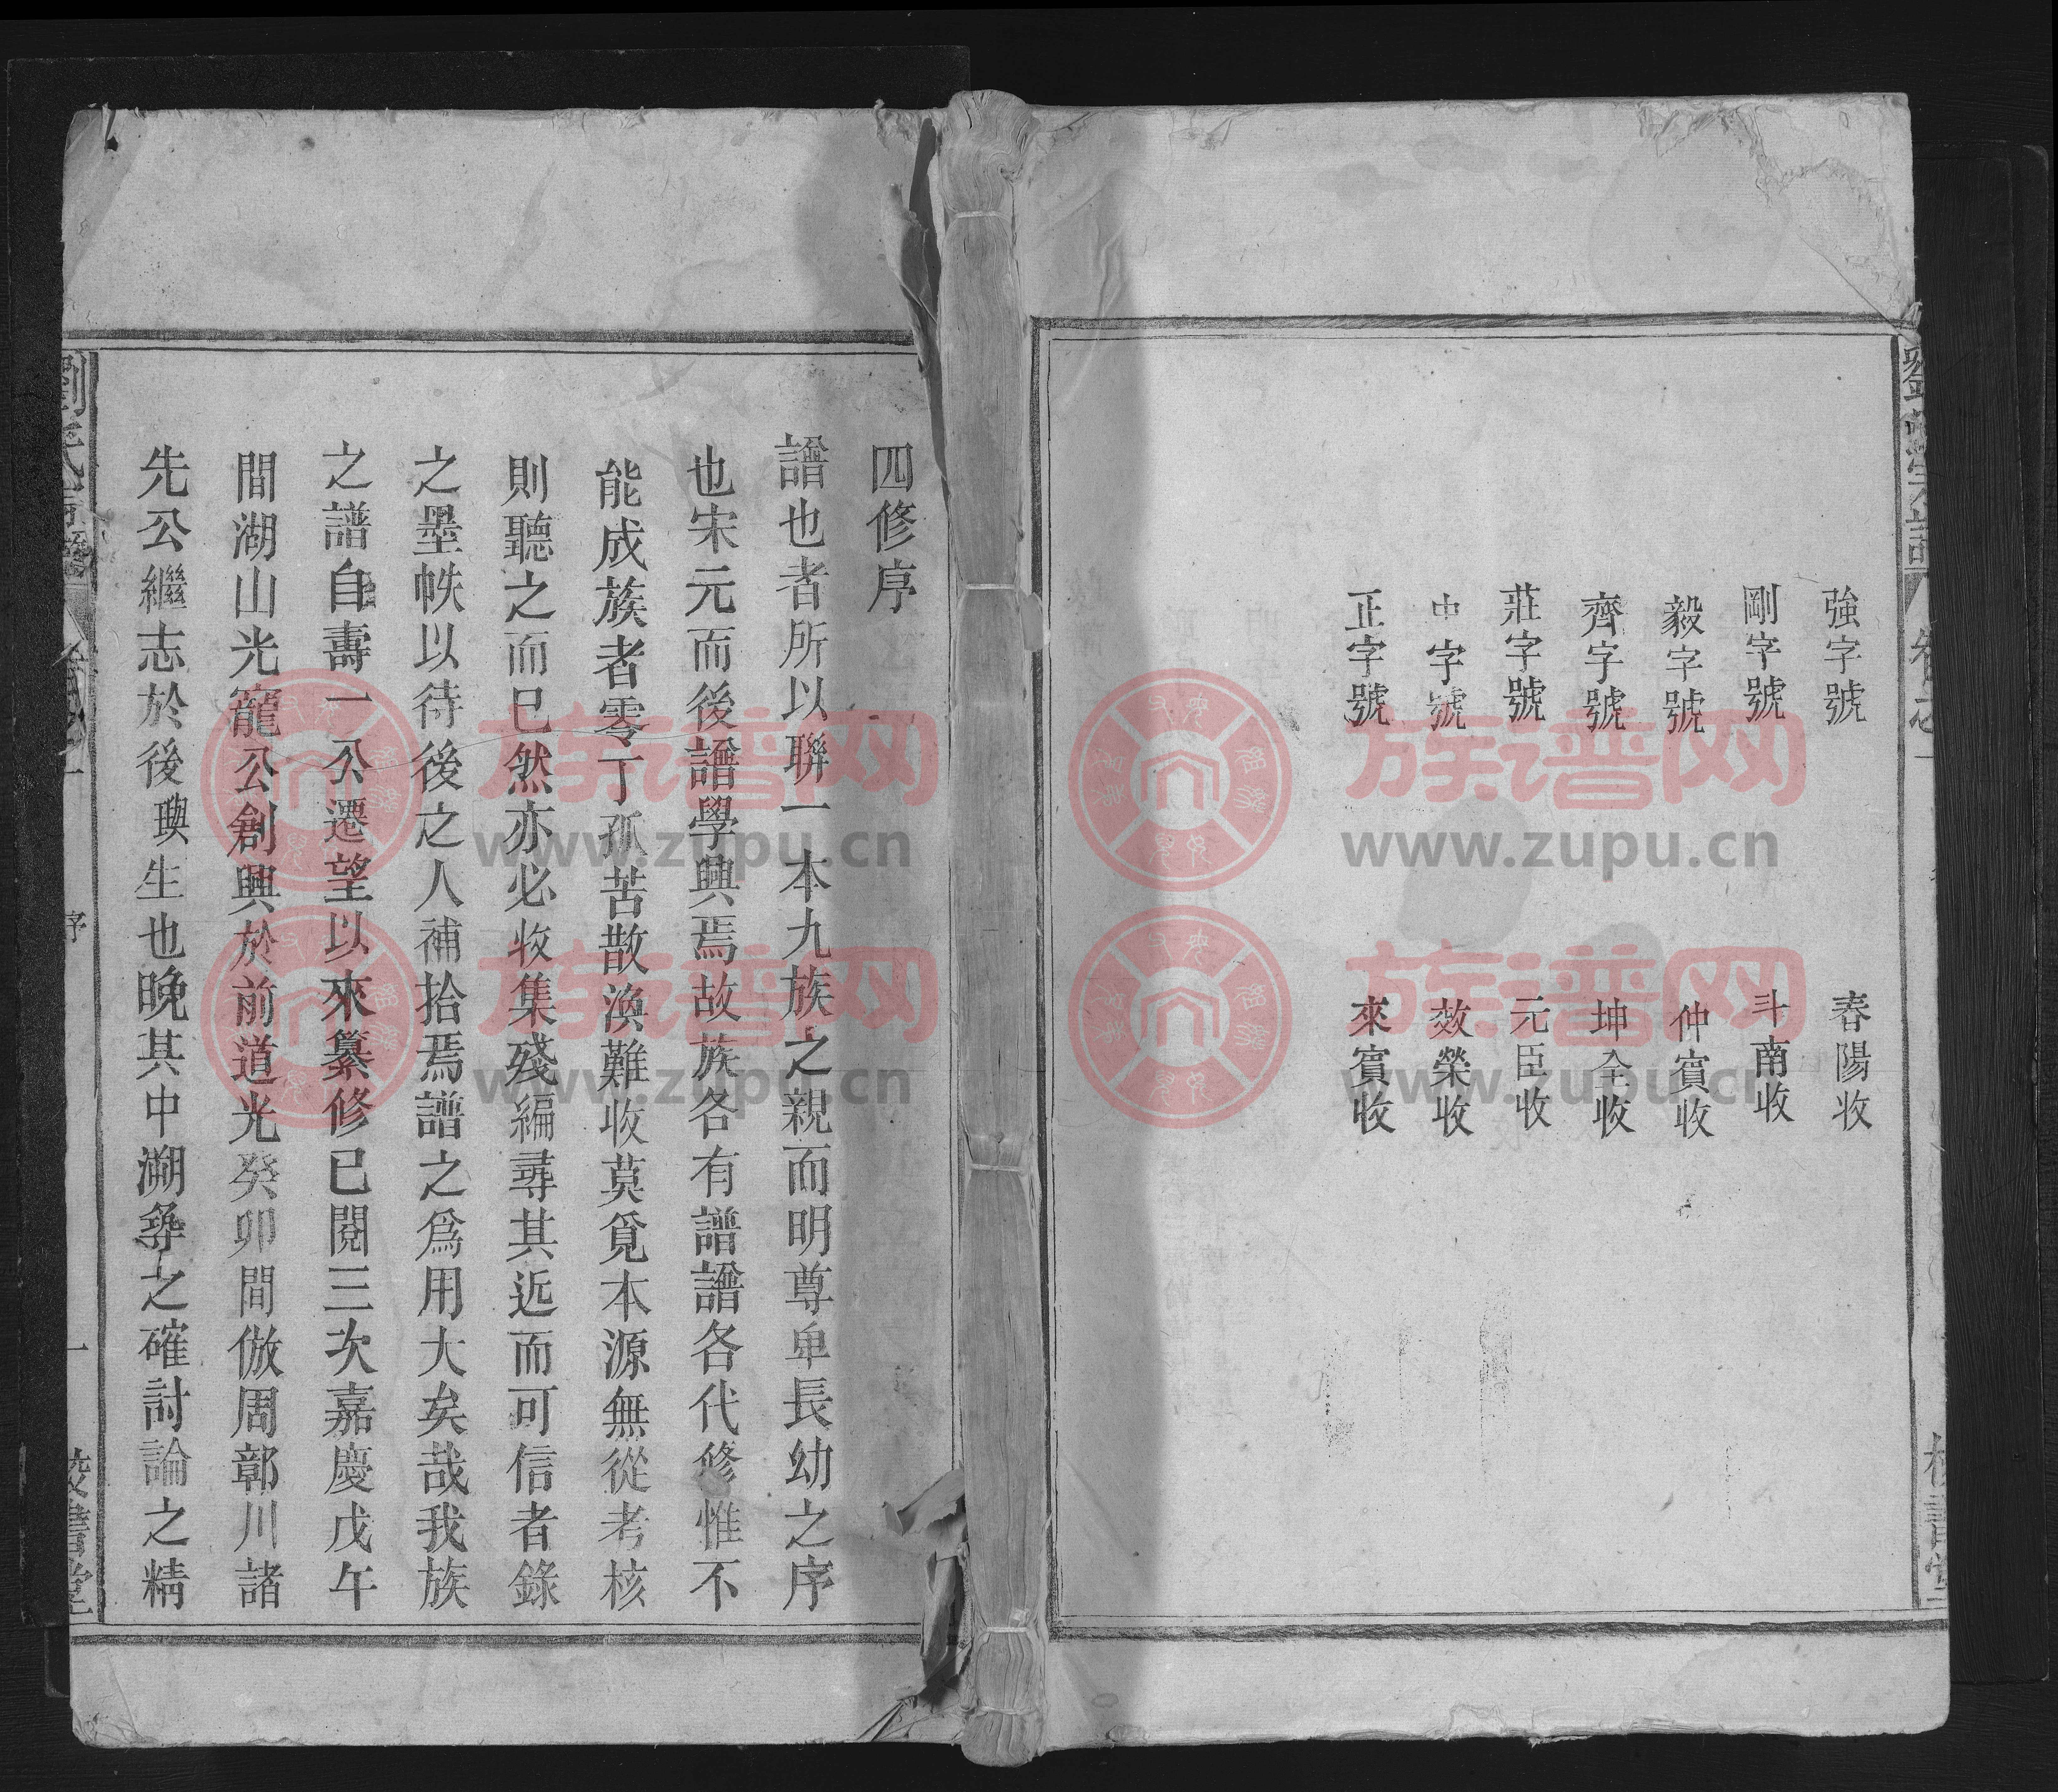 強字號 春陽收
剛字號 斗南收
毅字號 仲賓收
齊字號 坤全收
莊字號 元臣收
中字號 效榮收
正字號 來賓收
四修序
譜也者所以聯一本九族之親而明尊卑長幼之序
也宋元而後譜學興焉故族各有譜譜各代修惟不
能成族者零丁孤苦散渙難收莫覓本源無從考核
則聽之而已然亦必收集殘編尋其近而可信者錄
之墨帙以待後之人補拾焉譜之為用大矣哉我族
之譜自壽一公遷望以來纂修已閱三次嘉慶戊午
間湖山光寵公創興於前道光癸卯間倣周鄣川諸
先公繼志於後璵生也晚其中溯尋之確討論之精
劉氏宗譜
序
一
校書堂
族谱网
www.zupu.cn
族谱网
www.zupu.cn
族谱网
www.zupu.cn
族谱网
www.zupu.cn